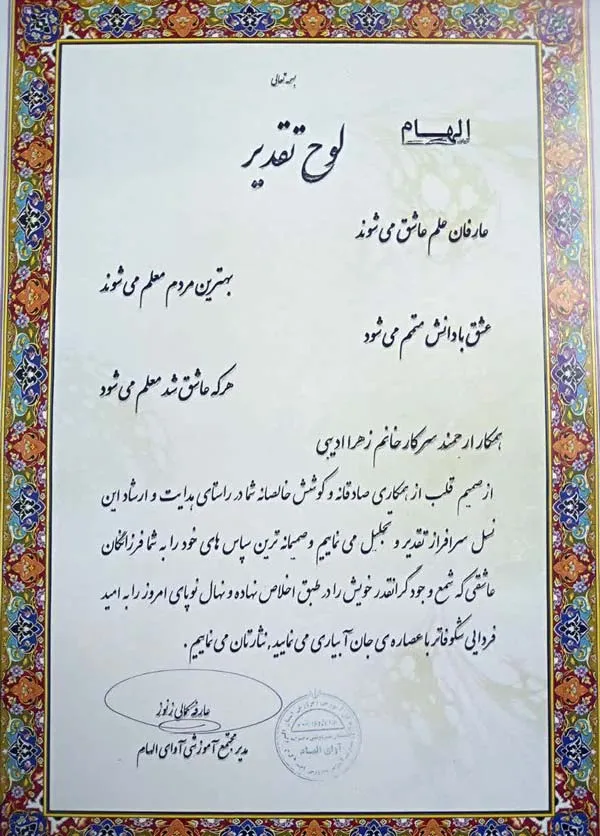 بسمه تعالی
الهام
لوح تقدیر
عارفان علم عاشق می شوند
بهترین مردم معلم می شوند
عشق با دانش متمم می شود
هرکه عاشق شد معلم می شود
همکار ارجمند سرکار خانم زهرا ادیبی
از صمیم قلب از همکاری صادقانه و کوشش خالصانه شما در راستای هدایت و ارشاد این
نسل سرافراز تقدیر و تجلیل می نماییم و صمیمانه ترین سپاس های خود را به شما فرزانگان
عاشقی که شمع وجود گرانقدر خویش را در طبق اخلاص نهاده و نهال نوپای امروز را به امید
فردایی شکوفاتر با عصاره ی جان آبیاری می نمایید, نثارتان می نماییم .
عارفه کمالی زنوز
مدیر مجتمع آموزشی آوای الهام
آوای الهام